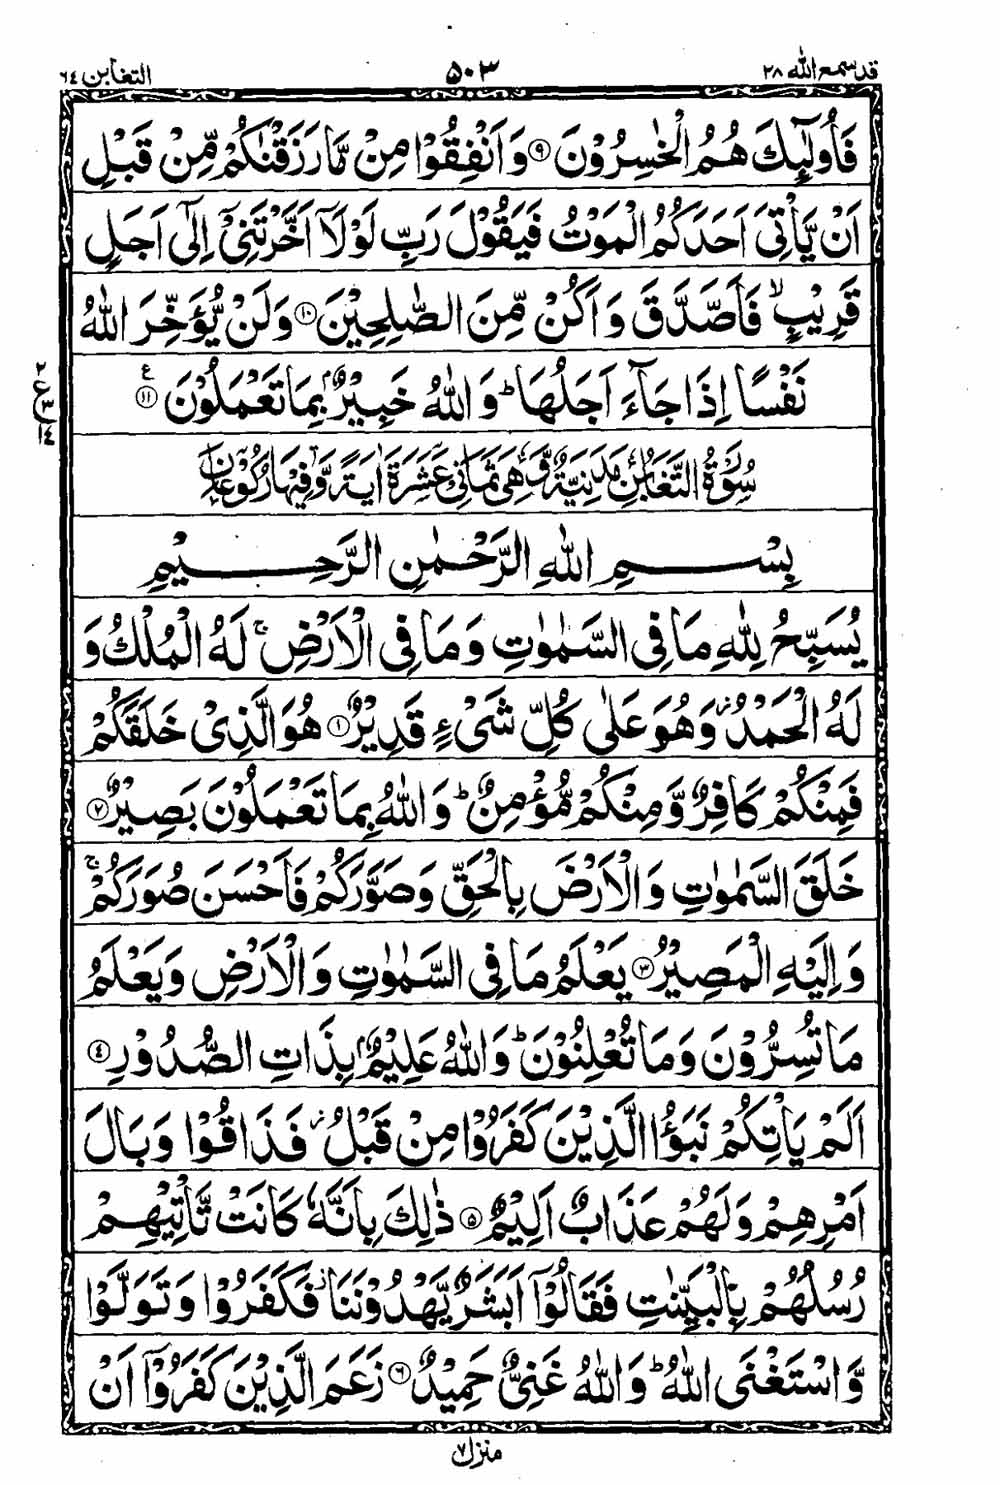 قد سمع الله ٢٨ ۵٠٣ التغابن ٦٤
فَاُولٰٓئِكَ هُمُ الْخٰسِرُوْنَ ۹ وَاَنْفِقُوْا مِنْ مَّا رَزَقْنٰكُمْ مِّنْ قَبْلِ
اَنْ يَّاْتِىَ اَحَدَكُمُ الْمَوْتُ فَيَقُوْلَ رَبِّ لَوْلَاۤ اَخَّرْتَنِىْۤ اِلٰٓى اَجَلٍ
قَرِيْبٍ ۙ فَاَصَّدَّقَ وَاَكُنْ مِّنَ الصّٰلِحِيْنَ ۱۰ وَلَنْ يُّؤَخِّرَ اللّٰهُ
نَفْسًا اِذَا جَآءَ اَجَلُهَا ؕ وَاللّٰهُ خَبِيْرٌۢ بِمَا تَعْمَلُوْنَ ۱۱ ع
سُوْرَةُ التَّغَابُنِ مَدَنِيَّةٌ وَّهِىَ ثَمَانِىَ عَشَرَةَ اٰيَةً وَّفِيْهَا رُكُوْعَانِ
بِسْمِ اللّٰهِ الرَّحْمٰنِ الرَّحِيْمِ
يُسَبِّحُ لِلّٰهِ مَا فِى السَّمٰوٰتِ وَمَا فِى الْاَرْضِ ۚ لَهُ الْمُلْكُ وَ
لَهُ الْحَمْدُ ؗ وَهُوَ عَلٰى كُلِّ شَىْءٍ قَدِيْرٌ ۱ هُوَ الَّذِىْ خَلَقَكُمْ
فَمِنْكُمْ كَافِرٌ وَّمِنْكُمْ مُّؤْمِنٌ ؕ وَاللّٰهُ بِمَا تَعْمَلُوْنَ بَصِيْرٌ ۲
خَلَقَ السَّمٰوٰتِ وَالْاَرْضَ بِالْحَقِّ وَصَوَّرَكُمْ فَاَحْسَنَ صُوَرَكُمْ ۚ
وَاِلَيْهِ الْمَصِيْرُ ۳ يَعْلَمُ مَا فِى السَّمٰوٰتِ وَالْاَرْضِ وَيَعْلَمُ
مَا تُسِرُّوْنَ وَمَا تُعْلِنُوْنَ ؕ وَاللّٰهُ عَلِيْمٌۢ بِذَاتِ الصُّدُوْرِ ٤
اَلَمْ يَاْتِكُمْ نَبَؤُا الَّذِيْنَ كَفَرُوْا مِنْ قَبْلُ ؗ فَذَاقُوْا وَبَالَ
اَمْرِهِمْ وَلَهُمْ عَذَابٌ اَلِيْمٌ ۵ ذٰلِكَ بِاَنَّهٗ كَانَتْ تَّاْتِيْهِمْ
رُسُلُهُمْ بِالْبَيِّنٰتِ فَقَالُوْۤا اَبَشَرٌ يَّهْدُوْنَنَا ؗ فَكَفَرُوْا وَتَوَلَّوْا
وَّاسْتَغْنَى اللّٰهُ ؕ وَاللّٰهُ غَنِىٌّ حَمِيْدٌ ۶ زَعَمَ الَّذِيْنَ كَفَرُوْۤا اَنْ
منزل ۷